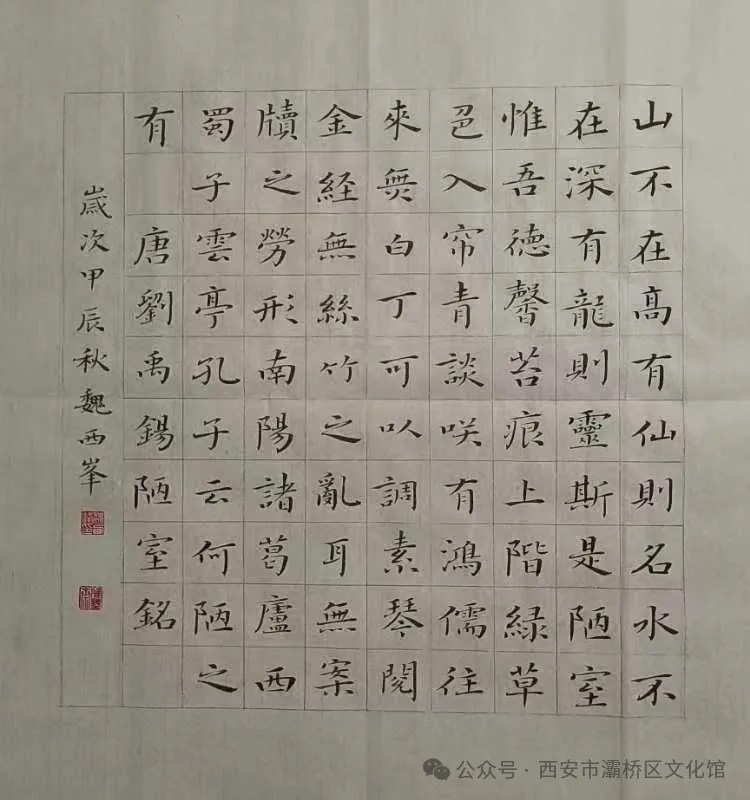 山不在髙有仙則名水不
在深有龍則靈斯是陋室
惟吾德馨苔痕上階緑草
色入帘青談咲有鴻儒往
來無白丁可以調素琴閱
金経無絲竹之亂耳無案
牘之勞形南陽諸葛廬西
蜀子雲亭孔子云何陋之
有 唐劉禹錫陋室銘
歲次甲辰秋魏西峯
公众号·西安市灞桥区文化馆